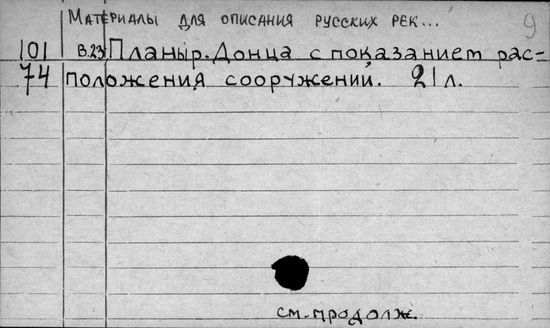 Материалы для описания русских рек... 9
101 В.23 Планы р. Донца с показанием рас-
74 положения сооружении. 21 л.
см. продолж.